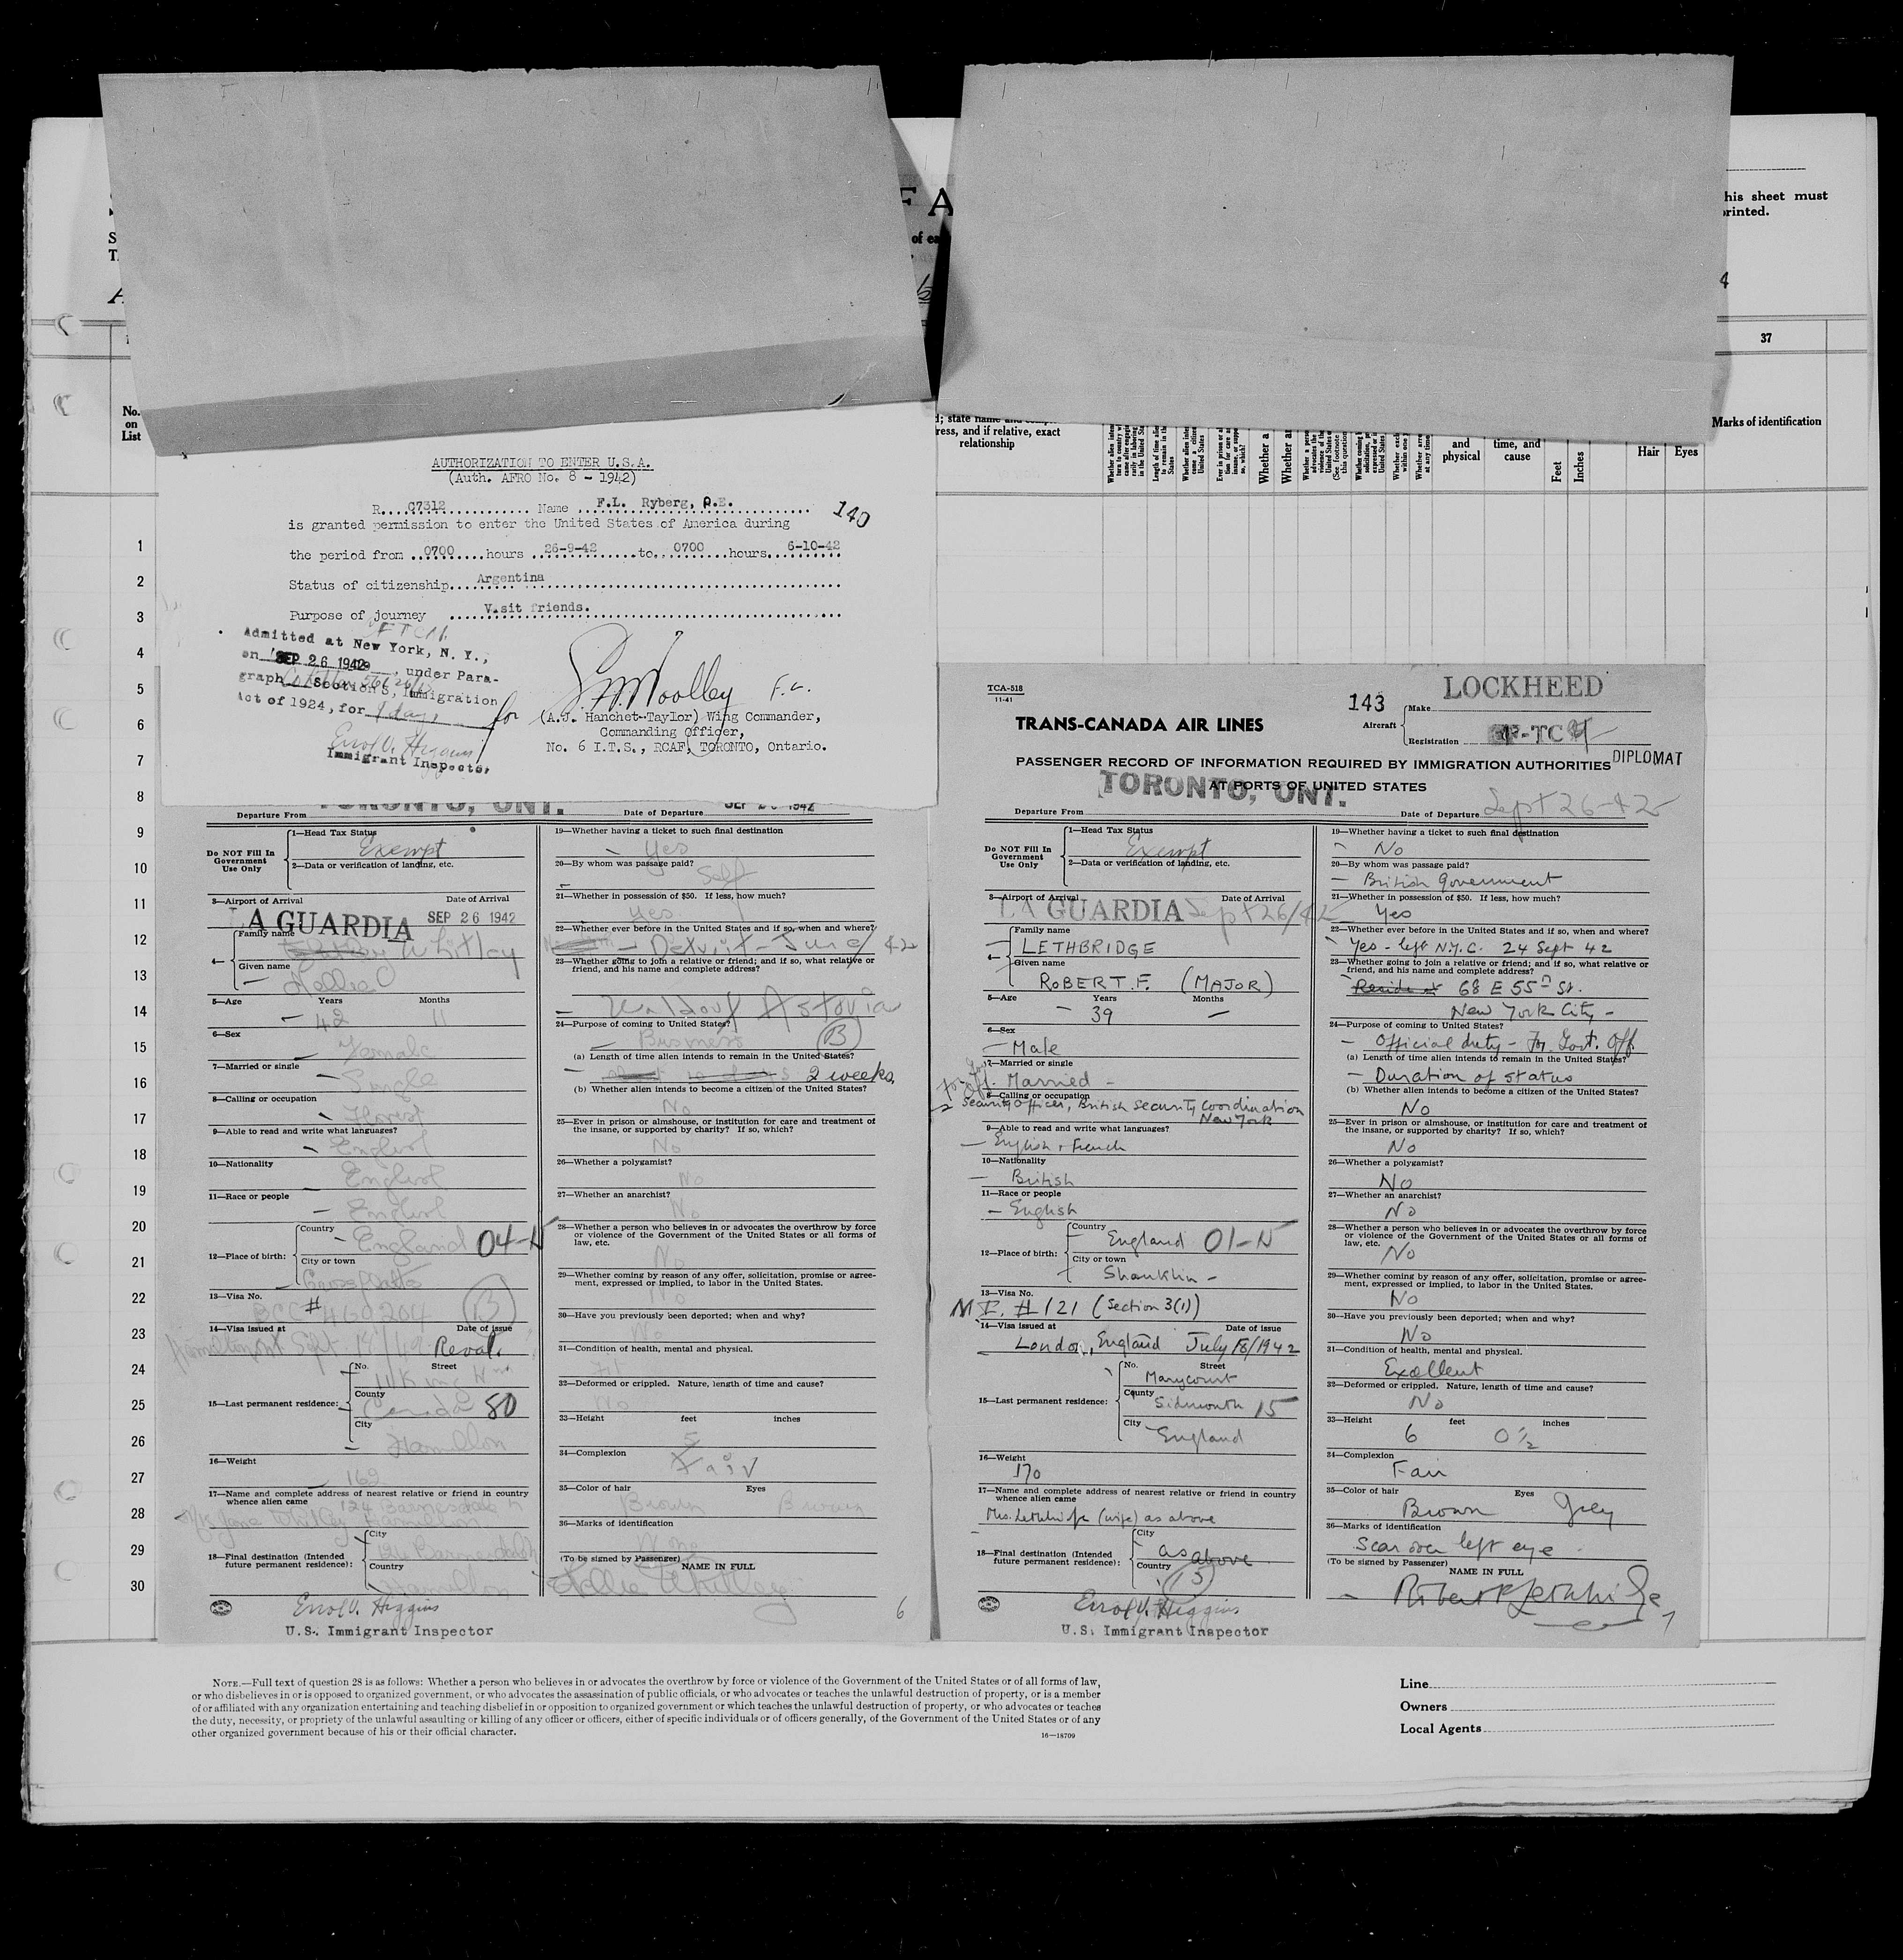 F A
of ea
his sheet must
printed.
4
37
No.
on
List
Marks of identification
ress, and if relative, exact
relationship
and
physical
time, and
cause
Feet
Inches
Hair
Eyes
Whether a
1
2
3
4
5
6
7
8
9
10
11
12
13
14
15
16
17
18
19
20
21
22
23
24
25
26
27
28
29
30
AUTHORIZATION TO ENTER U.S.A.
(Auth. AFRO No. 8 - 1942)
140
R....C7312.......... Name ..F.L. Ryberg,
is granted permission to enter the United States of America during
the period from ..0700....hours ..26-9-42.....to..0700...hours..6-10-42
Status of citizenship....Argentina
Purpose of journey ....V.sit friends.
Admitted at New York, N. Y.,
on SEP 26 1942, under Para-
graph Section 3, Immigration
Act of 1924, for
Errol V. Higgins
Immigrant Inspector
for
Woolley F.L.
(A.J. Hanchet-Taylor) Wing Commander,
Commanding Officer,
No. 6 I.T.S., RCAF, TORONTO, Ontario.
TORONTO, ONT.
Departure From
Date of Departure SEP 26 1942
Do NOT Fill In
Government
Use Only
1—Head Tax Status
Exempt
2—Data or verification of landing, etc.
3—Airport of Arrival
Date of Arrival
LA GUARDIA SEP 26 1942
4—
Family name
Whitley
Given name
Nellie
5—Age Years Months
42 11
6—Sex
Female
7—Married or single
Single
8—Calling or occupation
Florist
9—Able to read and write what languages?
English
10—Nationality
English
11—Race or people
English
12—Place of birth:
Country
England 04-N
City or town
13—Visa No.
#
14—Visa issued at Date of issue
Reval.
15—Last permanent residence:
No. Street
County
Canada 80
City
Hamilton
16—Weight
162
17—Name and complete address of nearest relative or friend in country
whence alien came
18—Final destination (Intended
future permanent residence):
City
Country
Hamilton
Errol V. Higgins
U.S. Immigrant Inspector
19—Whether having a ticket to such final destination
Yes
20—By whom was passage paid?
Self
21—Whether in possession of $50. If less, how much?
Yes
22—Whether ever before in the United States and if so, when and where?
Detroit - June/42
23—Whether going to join a relative or friend; and if so, what relative or
friend, and his name and complete address?
Waldorf Astoria
24—Purpose of coming to United States?
Business B
(a) Length of time alien intends to remain in the United States?
2 weeks
(b) Whether alien intends to become a citizen of the United States?
No
25—Ever in prison or almshouse, or institution for care and treatment of
the insane, or supported by charity? If so, which?
No
26—Whether a polygamist?
No
27—Whether an anarchist?
No
28—Whether a person who believes in or advocates the overthrow by force
or violence of the Government of the United States or all forms of
law, etc.
No
29—Whether coming by reason of any offer, solicitation, promise or agree-
ment, expressed or implied, to labor in the United States.
No
30—Have you previously been deported; when and why?
No
31—Condition of health, mental and physical.
32—Deformed or crippled. Nature, length of time and cause?
No
33—Height feet inches
5
34—Complexion
Fair
35—Color of hair Eyes
Brown Brown
36—Marks of identification
None
(To be signed by Passenger) NAME IN FULL
Nellie Whitley
6
TCA-518
11-41
143
Aircraft
Make LOCKHEED
Registration
TRANS-CANADA AIR LINES
DIPLOMAT
PASSENGER RECORD OF INFORMATION REQUIRED BY IMMIGRATION AUTHORITIES
AT PORTS OF UNITED STATES
TORONTO, ONT.
Departure From
Date of Departure Sept 26-42
Do NOT Fill In
Government
Use Only
1—Head Tax Status
Exempt
2—Data or verification of landing, etc.
3—Airport of Arrival
Date of Arrival
LA GUARDIA Sept 26/42
4—
Family name
LETHBRIDGE
Given name
ROBERT. F. (MAJOR)
5—Age Years Months
39 —
6—Sex
Male
7—Married or single
Married -
8—Calling or occupation
Security Officer, British Security Coordination
New York
9—Able to read and write what languages?
English + French
10—Nationality
British
11—Race or people
English
12—Place of birth:
Country
England 01-N
City or town
Shanklin -
13—Visa No.
#121 (Section 3(1))
14—Visa issued at Date of issue
London, England July 18/1942
15—Last permanent residence:
No. Street
Marycourt
County
Sidmouth 15
City
England
16—Weight
170
17—Name and complete address of nearest relative or friend in country
whence alien came
Mrs. Lethbridge (wife) as above
18—Final destination (Intended
future permanent residence):
City
as above
Country
(15)
Errol V. Higgins
U.S. Immigrant Inspector
19—Whether having a ticket to such final destination
No
20—By whom was passage paid?
British Government
21—Whether in possession of $50. If less, how much?
Yes
22—Whether ever before in the United States and if so, when and where?
Yes - left N.Y.C. 24 Sept 42
23—Whether going to join a relative or friend; and if so, what relative or
friend, and his name and complete address?
68 E 55th St.
New York City -
24—Purpose of coming to United States?
Official duty - For Govt. Off.
(a) Length of time alien intends to remain in the United States?
Duration of status
(b) Whether alien intends to become a citizen of the United States?
No
25—Ever in prison or almshouse, or institution for care and treatment of
the insane, or supported by charity? If so, which?
No
26—Whether a polygamist?
No
27—Whether an anarchist?
No
28—Whether a person who believes in or advocates the overthrow by force
or violence of the Government of the United States or all forms of
law, etc.
No
29—Whether coming by reason of any offer, solicitation, promise or agree-
ment, expressed or implied, to labor in the United States.
No
30—Have you previously been deported; when and why?
No
31—Condition of health, mental and physical.
Excellent
32—Deformed or crippled. Nature, length of time and cause?
No
33—Height feet inches
6 0½
34—Complexion
Fair
35—Color of hair Eyes
Brown Grey
36—Marks of identification
Scar over left eye
(To be signed by Passenger) NAME IN FULL
Robert F Lethbridge
7
NOTE.—Full text of question 28 is as follows: Whether a person who believes in or advocates the overthrow by force or violence of the Government of the United States or of all forms of law,
or who disbelieves in or is opposed to organized government, or who advocates the assassination of public officials, or who advocates or teaches the unlawful destruction of property, or is a member
of or affiliated with any organization entertaining and teaching disbelief in or opposition to organized government or which teaches the unlawful destruction of property, or who advocates or teaches
the duty, necessity, or propriety of the unlawful assaulting or killing of any officer or officers, either of specific individuals or of officers generally, of the Government of the United States or of any
other organized government because of his or their official character.
16—18709
Line
Owners
Local Agents